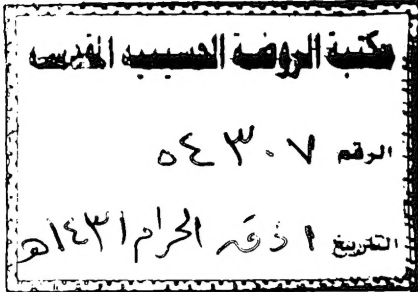 مكتبة الروضة الحسينيه المقدسه
الرقم ٥٤٣٠٧
التاريخ ١ الحرام ١٤٣١هـ